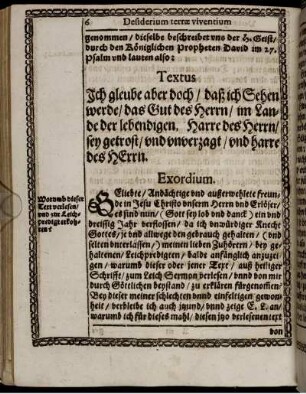 6
Desiderium terræ viventium
genommen / dieselbe beschreibet vns der H. Geist /
durch den Königlichen Propheten David im 27.
Psalm vnd lauten also:
Textus
Ich gleube aber doch / daß ich Sehen
werde / das Gut des Herrn / im Lan-
de der lebendigen. Harre des Herrn /
sey getrost / vnd vnverzagt / vnd harre
des HErrn.
Exordium.
Warumb dieser
Text verlesen /
vnd zur Leich-
predigt erkoh-
ren?
GEliebte / Andächtige vnd außerwehlete freun-
de in Jesu Christo vnserm Herrn vnd Erlöser /
es sind nun / (Gott sey lob vnd danck) ein vnd
dreissig Jahr verflossen / da ich vnwürdiger Knecht
Gottes / je vnd allwege den gebrauch gehalten / (vnd
selten vnterlassen /) meinen lieben Zuhörern / bey ge-
haltenen / Leichpredigten / balde anfänglich anzuzei-
gen / warumb dieser oder jener Text / auß heiliger
Schrifft / zum Leich Sermon verlesen / vnnd von mir
durch Göttlichen beystand / zu erklären fürgenom̃en /
Bey dieser meiner schlechten vnnd einfeltigen gewon-
heit / verbleibe ich auch jtzund / vnnd zeige E. L. an /
warumb ich für dieses mahl / diesen jtzo verlesenen text
von